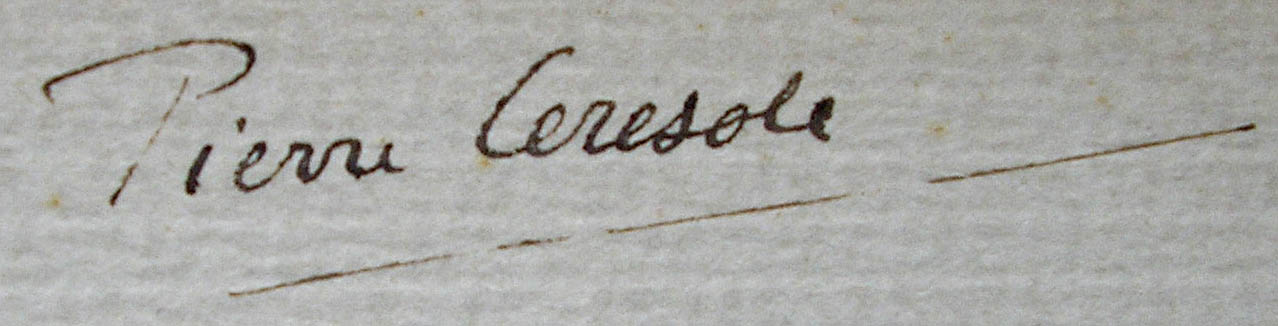 Pierre Ceresole